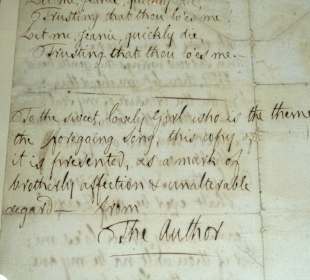 Let me, Jeanie, quickly die,
Trusting that thou lo'es me
Let me, Jeanie, quickly die,
Trusting that thou lo'es me.
To the sweet, lovely Girl who is the theme
the foregoing Song, this copy of
it is presented, as a mark of
brotherly affection & unalterable
regard— from
The Author